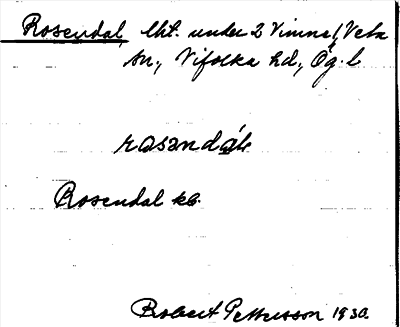 Rosendal, lht. under 2 Vimne, Veta
sn., Vifolka hd., Ög. l
rosəndɑ́l
Rosendal kb.
Robert Pettersson 1930.